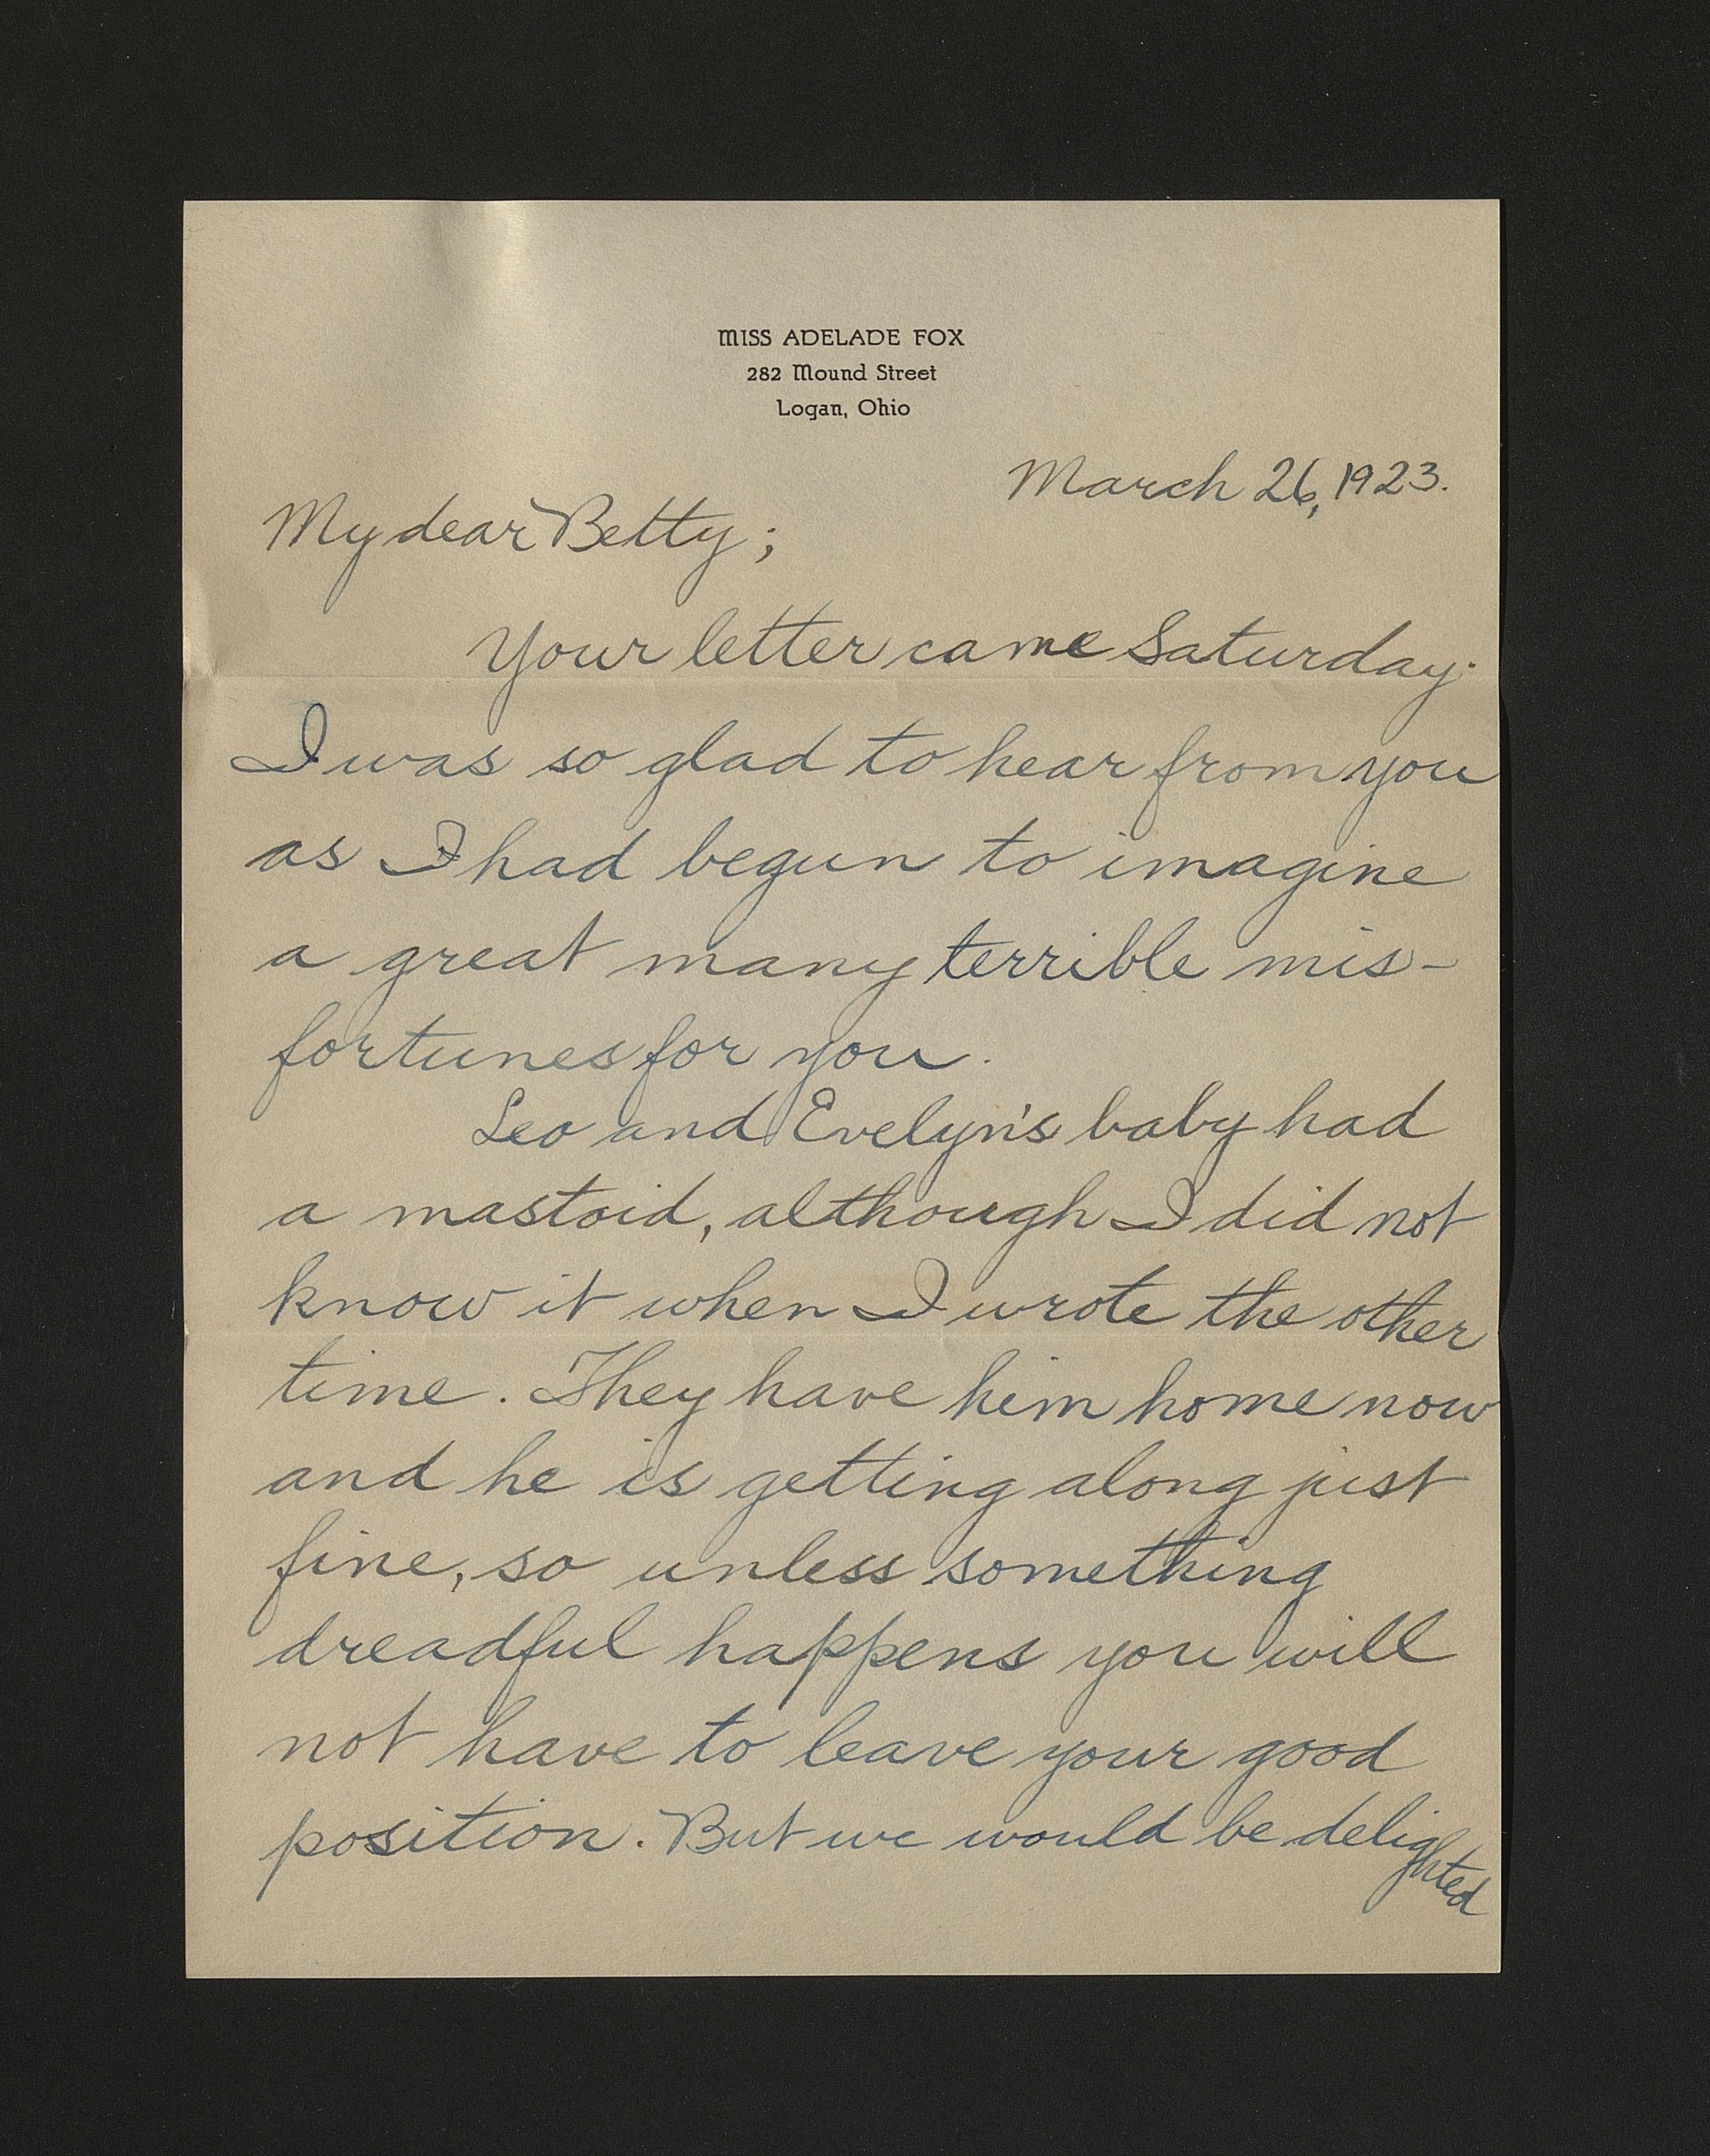 MISS ADELADE FOX
282 Mound Street
Logan, Ohio
March 26, 1923.
My dear Betty;
Your letter came Saturday.
I was so glad to hear from you
as I had begun to imagine
a great many terrible mis-
fortunes for you.
Leo and Evelyn's baby had
a mastoid, although I did not
know it when I wrote the other
time. They have him home now
and he is getting along just
fine, so unless something
dreadful happens you will
not have to leave your good
position. But we would be delighted